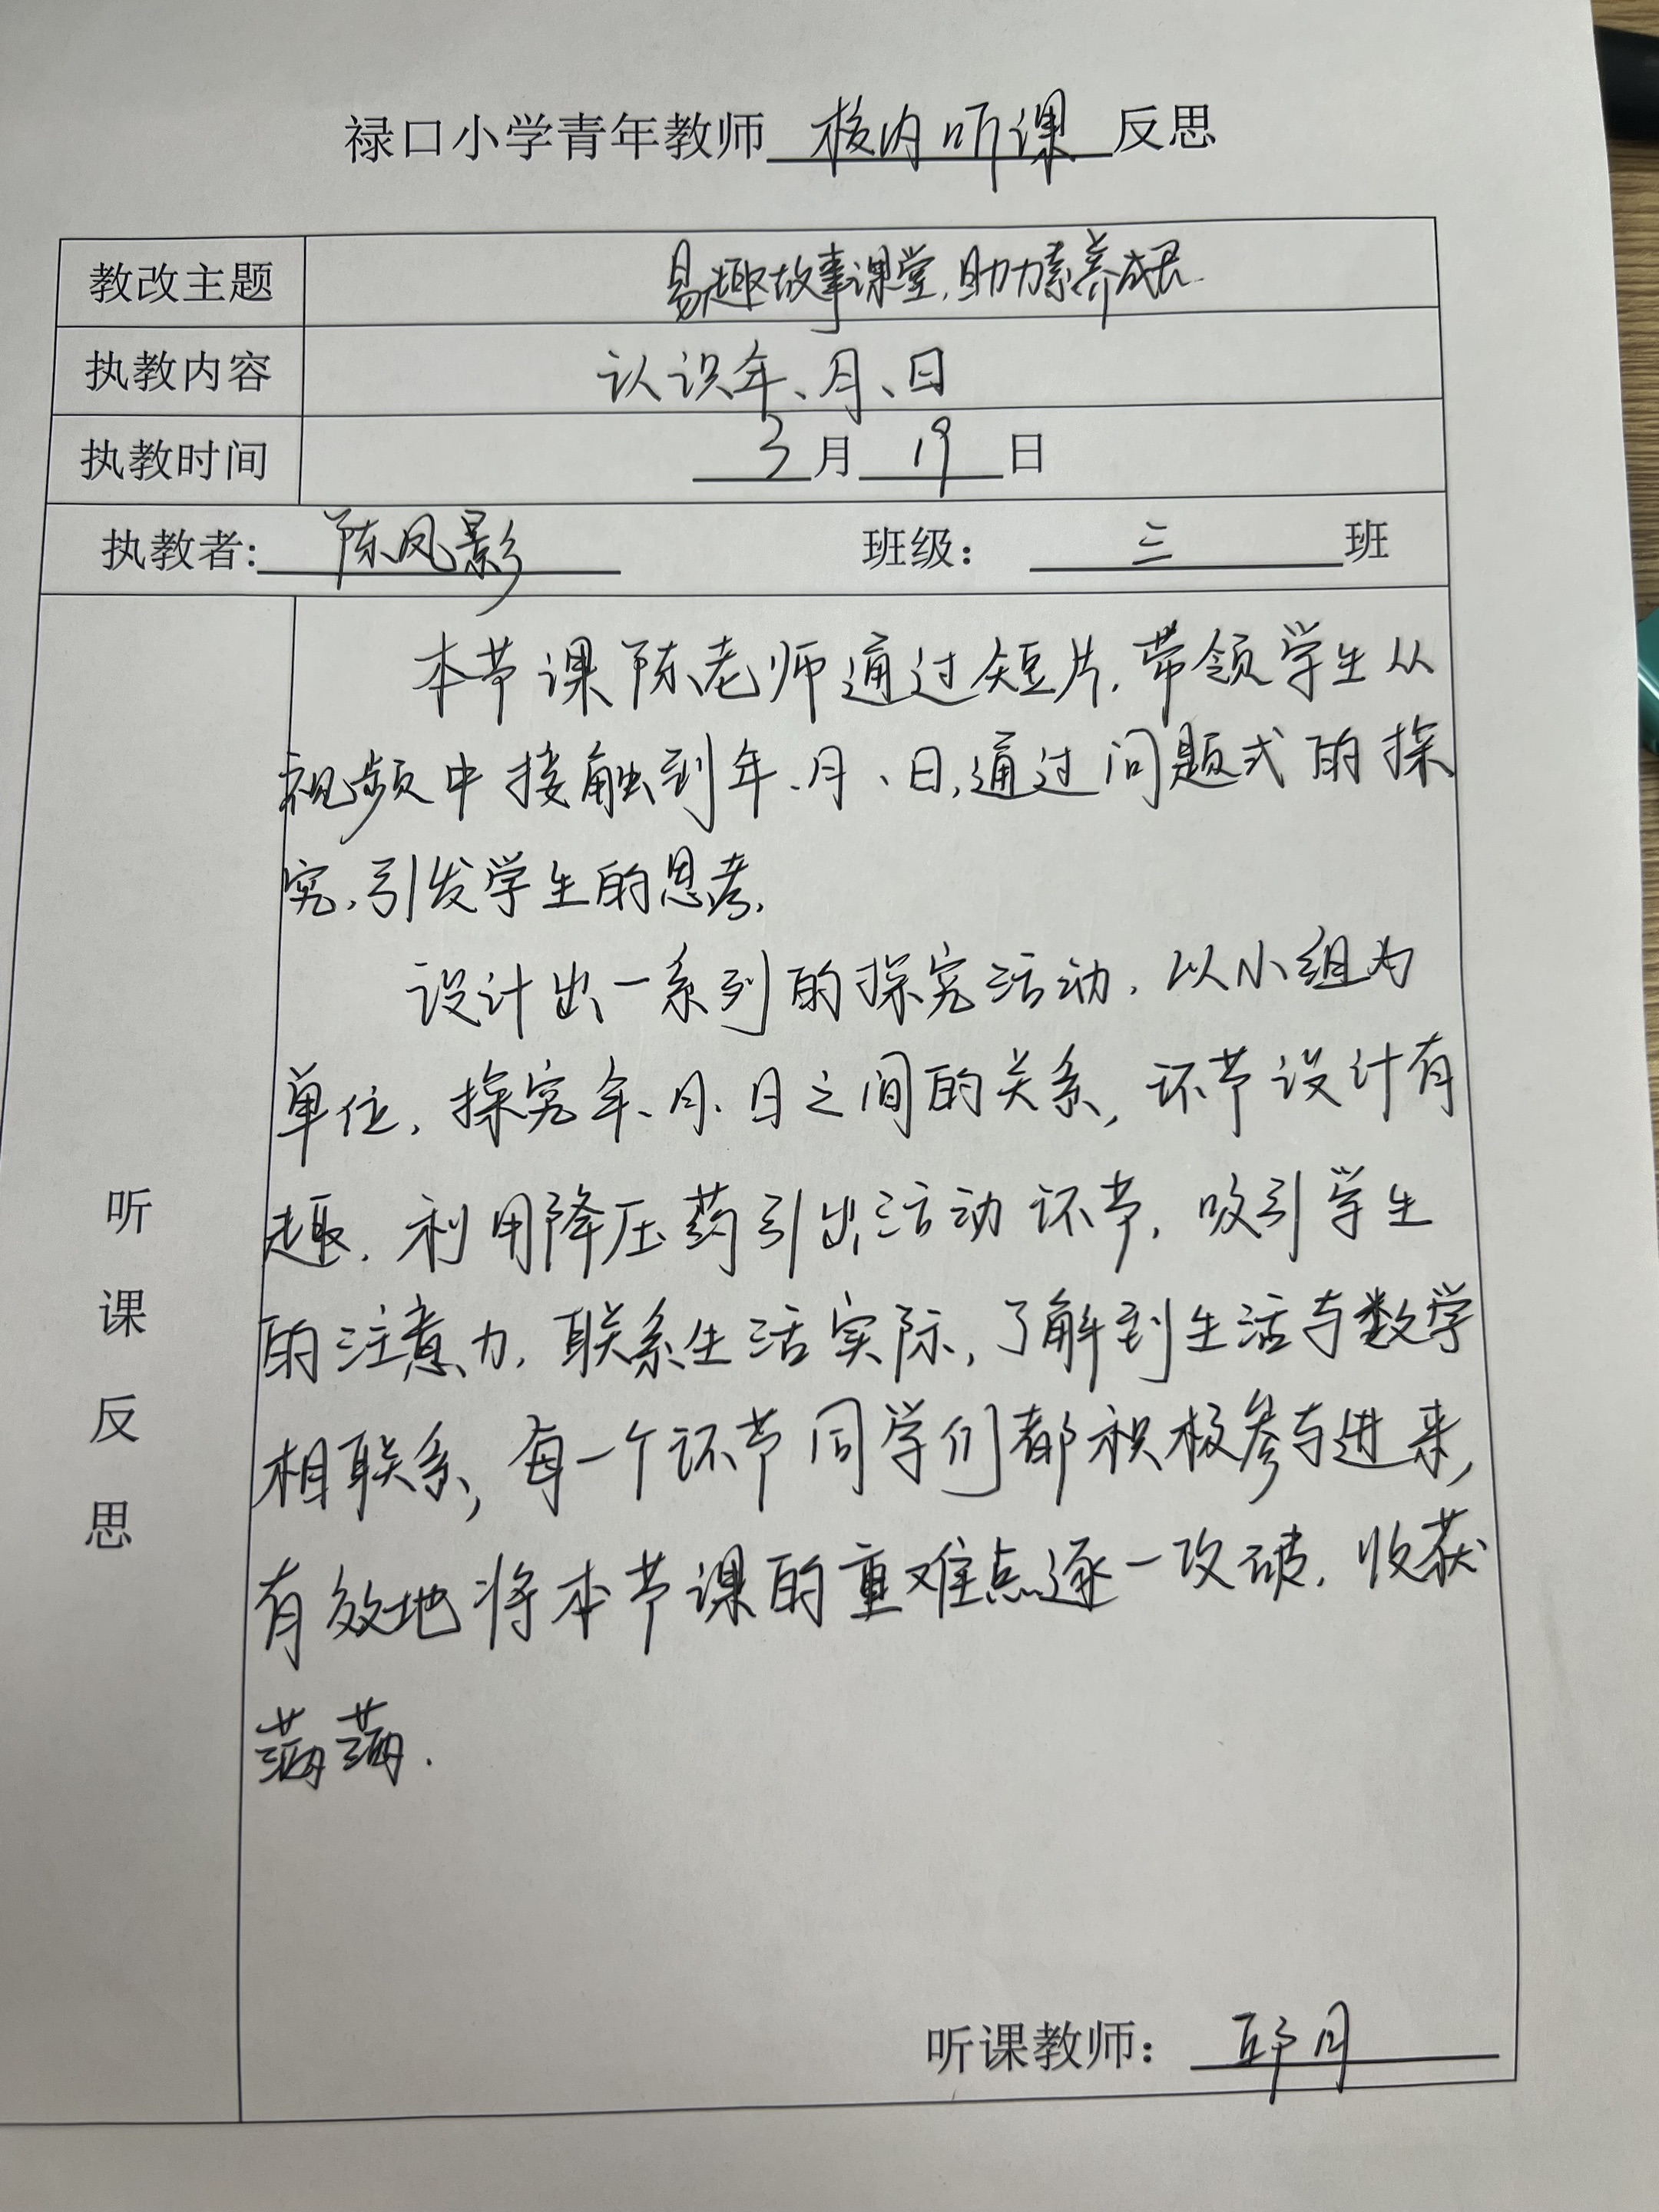 禄口小学青年教师 校内听课 反思
教改主题 易趣故事课堂,助力素养成长
执教内容 认识年、月、日
执教时间 3月19日
执教者: 陈凤影 班级: 三 班
听课反思
本节课陈老师通过短片,带领学生从
视频中接触到年、月、日,通过问题式的探
究,引发学生的思考,
设计出一系列的探究活动,以小组为
单位,探究年、月、日之间的关系,环节设计有
趣,利用降压药引出活动环节,吸引学生
的注意力,联系生活实际,了解到生活与数学
相联系,每一个环节同学们都积极参与进来,
有效地将本节课的重难点逐一攻破,收获
满满.
听课教师: 邱月